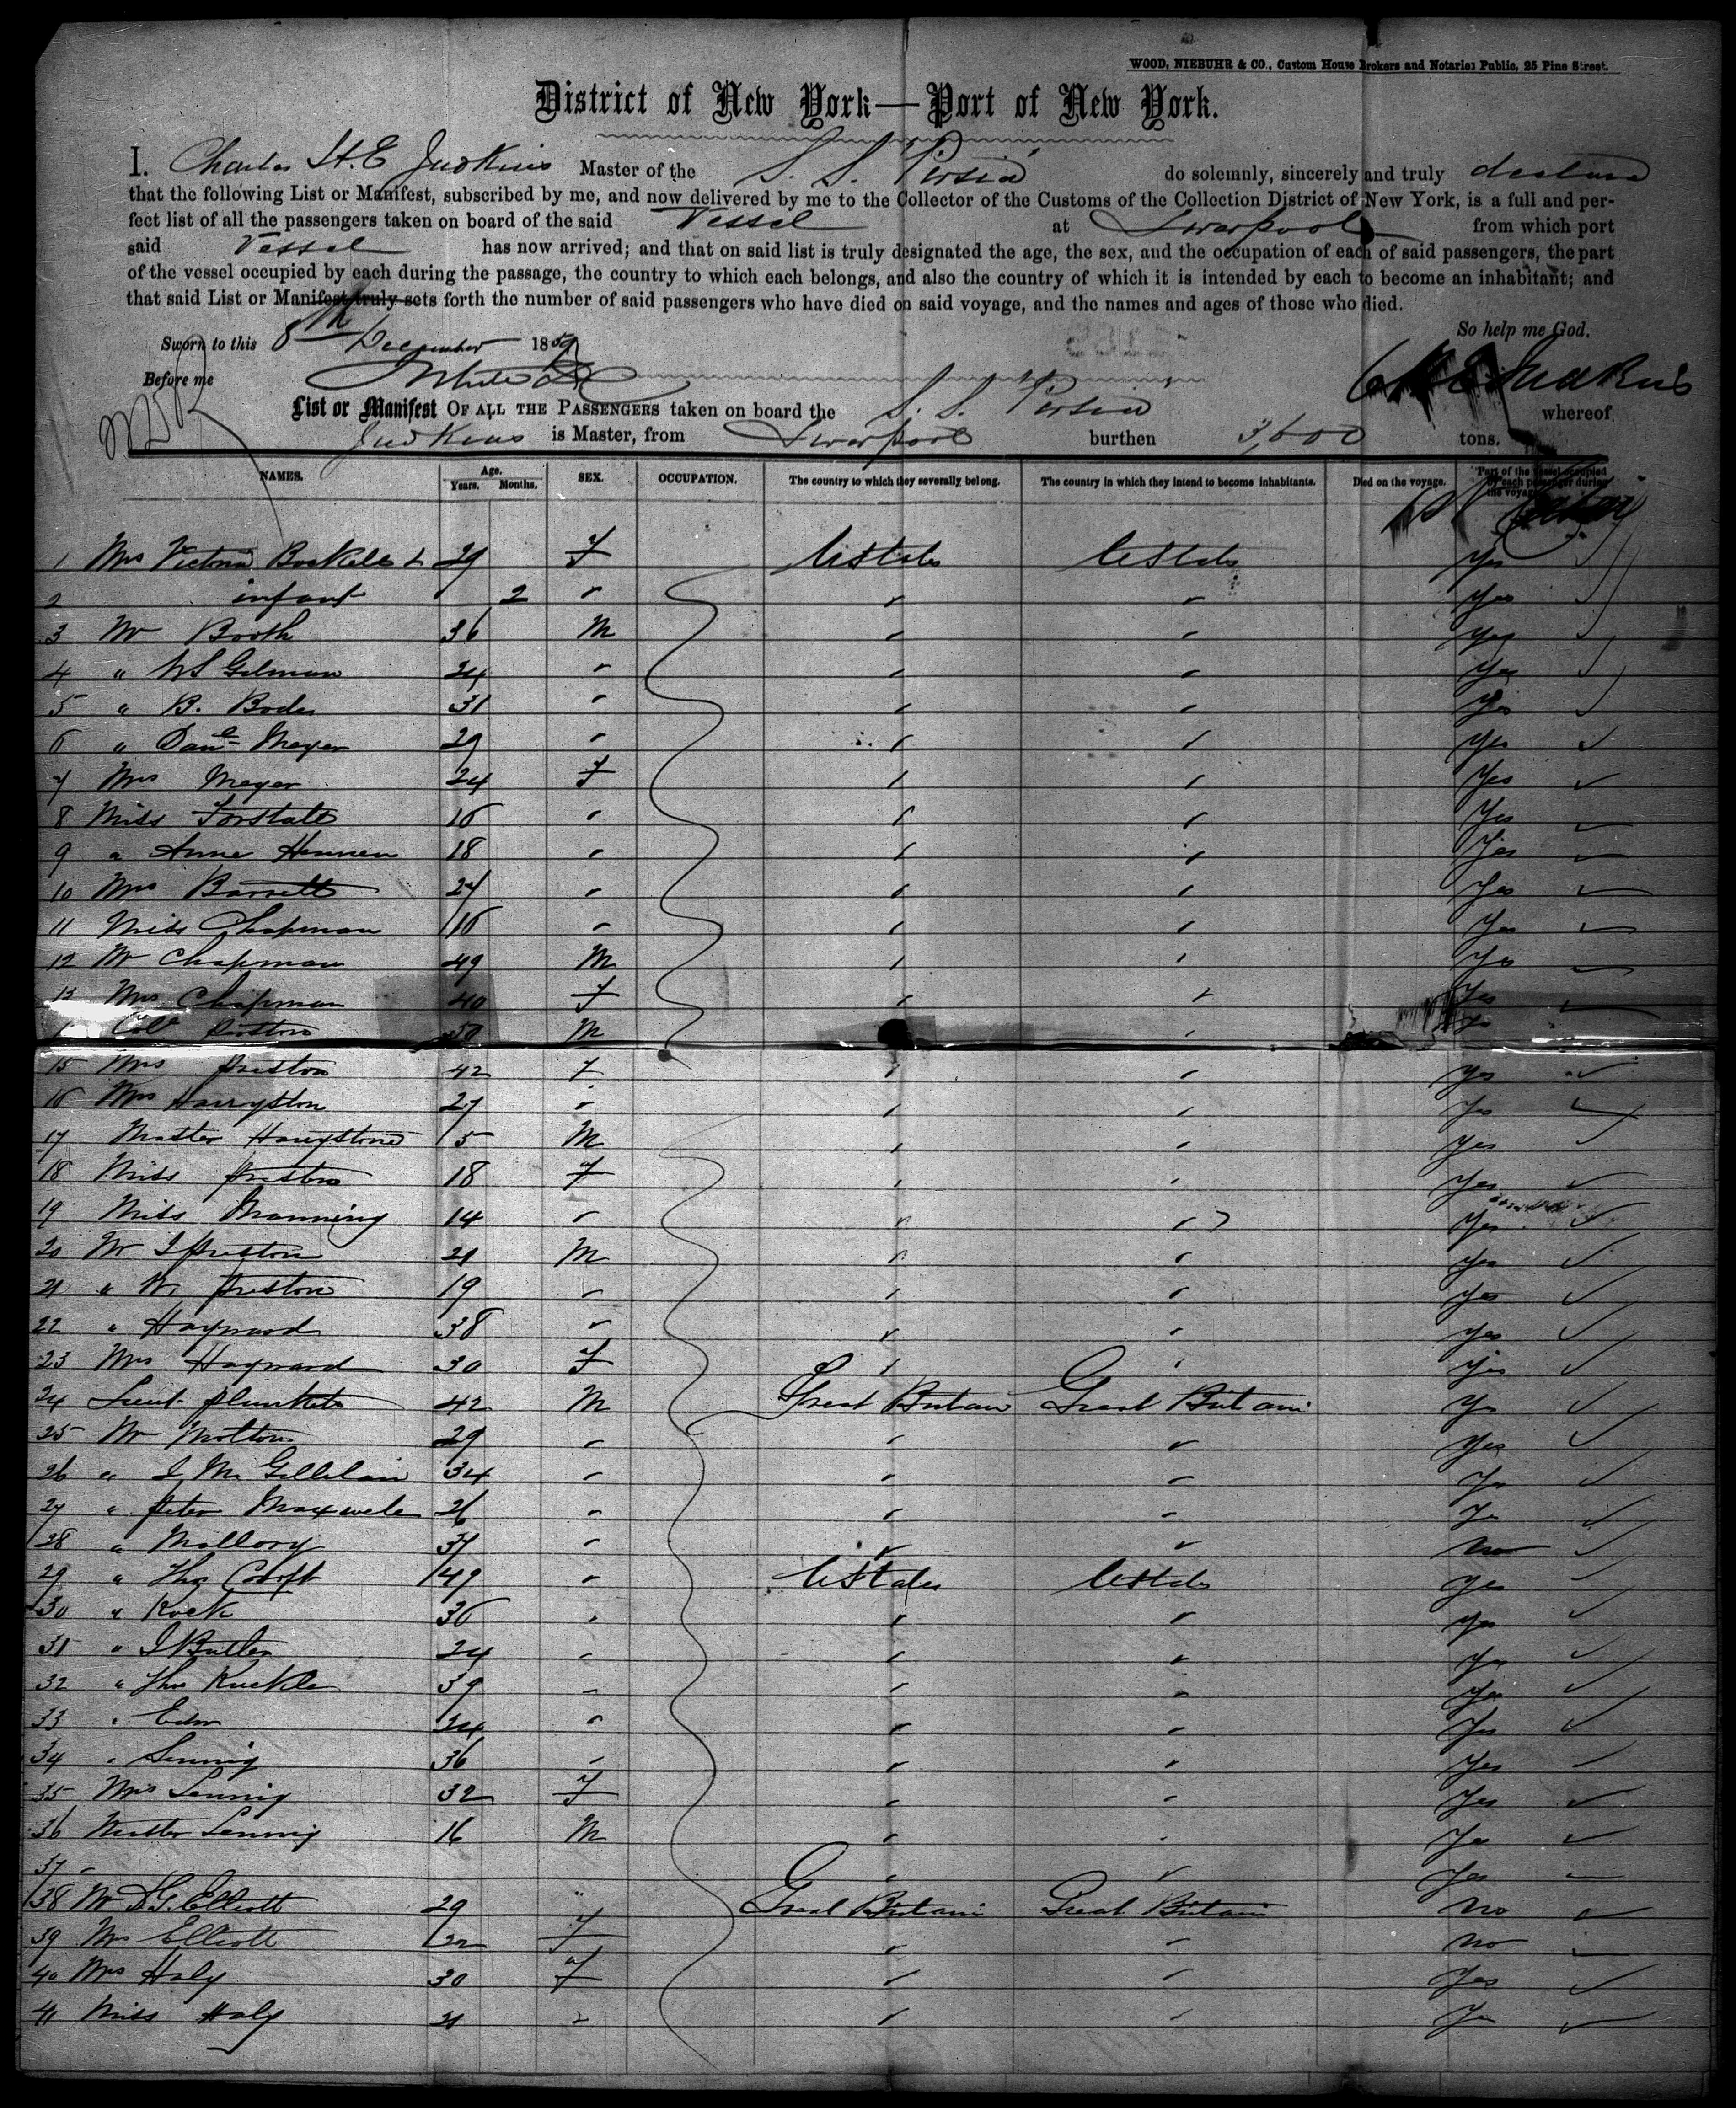 WOOD, NIEBUHR & CO., Custom House Brokers and Notaries Public, 25 Pine Street.
District of New York—Port of New York.
I. Charles H. E Judkins Master of the S. S. Persia do solemnly, sincerely and truly declare
that the following List or Manifest, subscribed by me, and now delivered by me to the Collector of the Customs of the Collection District of New York, is a full and per-
fect list of all the passengers taken on board of the said Vessel at Liverpool from which port
said Vessel has now arrived; and that on said list is truly designated the age, the sex, and the occupation of each of said passengers, the part
of the vessel occupied by each during the passage, the country to which each belongs, and also the country of which it is intended by each to become an inhabitant; and
that said List or Manifest truly sets forth the number of said passengers who have died on said voyage, and the names and ages of those who died.
So help me God.
Sworn to this 8th December 1859
Before me
C H E Judkins
List or Manifest OF ALL THE PASSENGERS taken on board the S. S. Persia whereof
Judkins is Master, from Liverpool burthen 3,600 tons.
NAMES. Age. Years. Months. SEX. OCCUPATION. The country to which they severally belong. The country in which they intend to become inhabitants. Died on the voyage. Part of the vessel occupied by each passenger during the voyage
1 Mrs Victoria 29 F UStates UStates Yes
2 infant 2 " " " Yes
3 Mr Booth 36 M " " Yes
4 " WS Gilman 24 " " " Yes
5 " B. Bodes 31 " " " Yes
6 " Danl Meyer 29 " " " Yes
7 Mrs Meyer 24 F " " Yes
8 Miss Forstall 16 " " " Yes
9 " Anne Hennen 18 " " " Yes
10 Mrs Barrett 27 " " " Yes
11 Miss Chapman 16 " " " Yes
12 Mr Chapman 49 M " " Yes
13 Mrs Chapman 40 F " " Yes
Col Preston 50 M " Yes
15 Mrs Preston 42 F " " Yes
16 Mrs 27 " " " Yes
17 Master 5 M " " Yes
18 Miss Preston 18 F " " Yes
19 Miss Manning 14 " " " Yes
20 Mr I Preston 21 M " " Yes
21 " W. Preston 19 " " " Yes
22 " Hayward 38 " " " Yes
23 Mrs Hayward 30 F " " Yes
24 Lieut. Plunkett 42 M Great Britain Great Britain Yes
25 Mr Motton 29 " " " Yes
26 " I Mc Gillilan 34 " " " Yes
27 " Peter Maxwell 26 " " " Yes
28 " Mallory 37 " " " No
29 " Thos Croft 49 " UStates UStates Yes
30 " Rock 36 " " " Yes
31 " I Butler 24 " " " Yes
32 " Thos Kuckle 39 " " " Yes
33 " 24 " " " Yes
34 " Lennig 36 " " " Yes
35 Mrs Lennig 32 F " " Yes
36 Master Lennig 16 M " " Yes
37 " " " Yes
38 Mr D G. Elliott 29 " Great Britain Great Britain No
39 Mrs Elliott 22 F " " No
40 Mrs Haly 30 F " " Yes
41 Miss Haly 21 " " " Yes